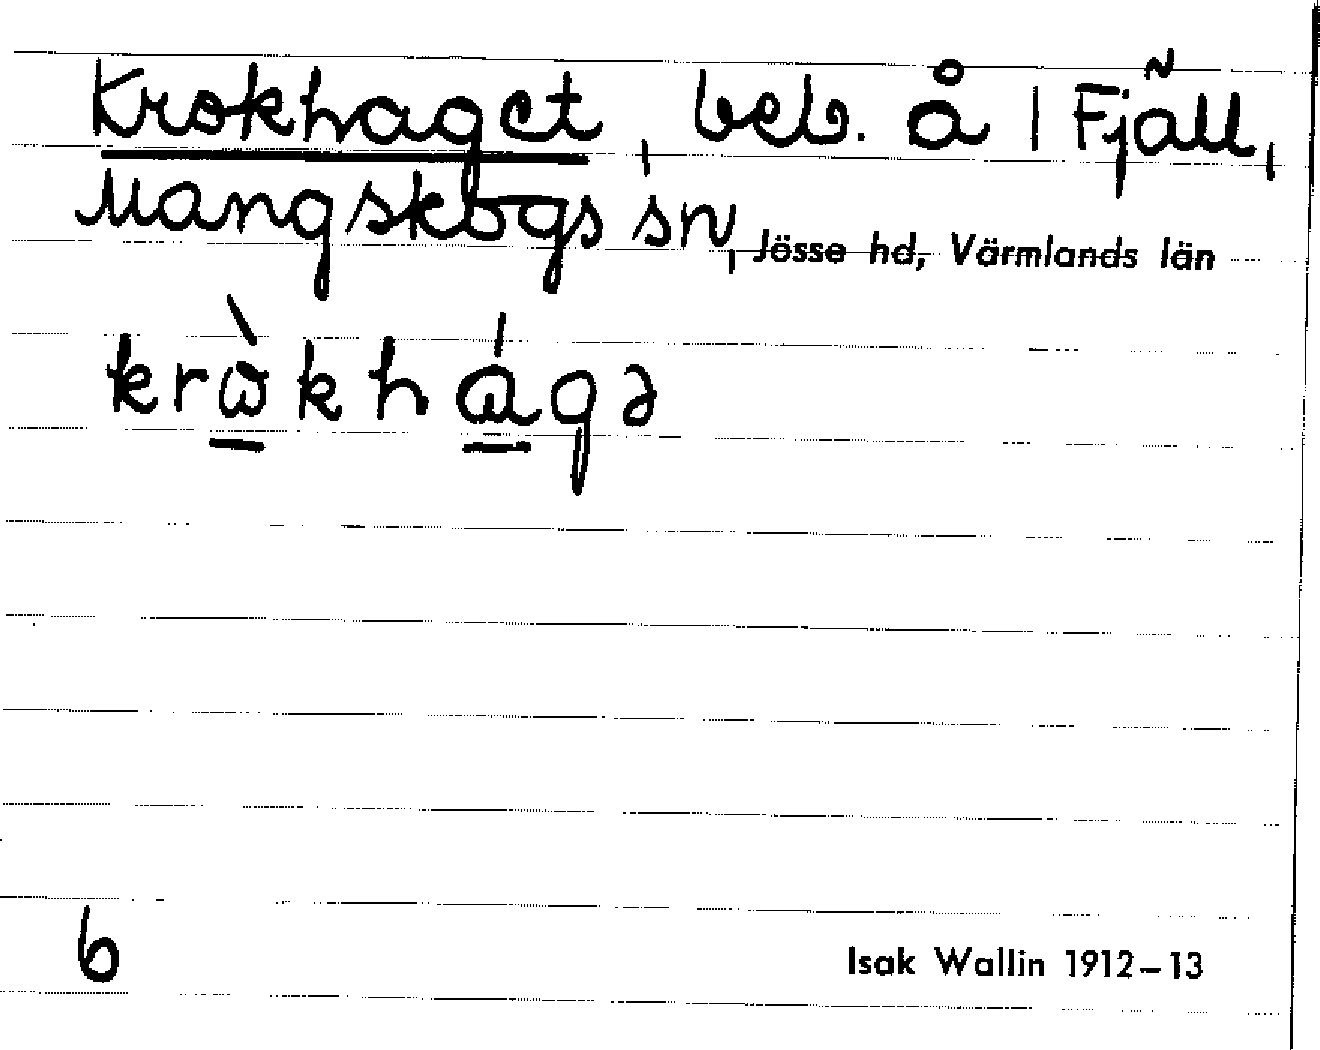 Krokhaget, beb. å 1 Fjäll,
Mangskogs sn, Jösse hd, Värmlands län
krὼkhágə
6
Isak Wallin 1912–13